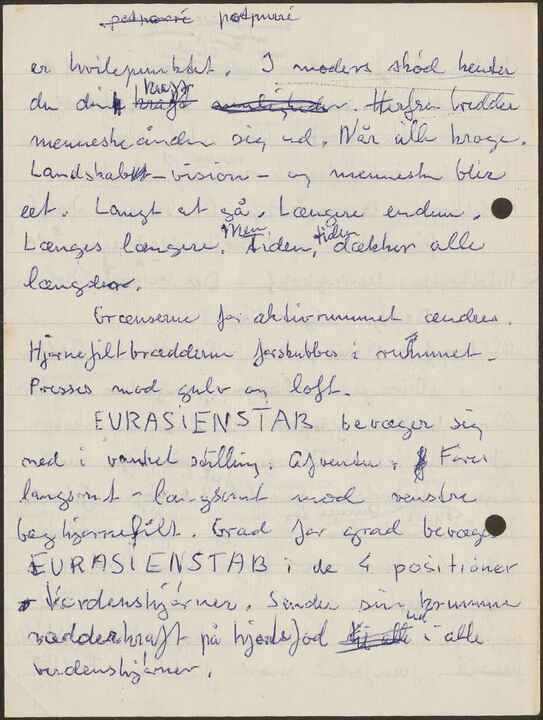 potpourri potpurri
er hvilepunktet. I moders skød henter
du din kraft kraft. Herfra bredder
menneskeånden sig ud. Når alle kroge.
Landskabet - vision - og menneske blir
eet. Langt at gå. Længere endnu.
Længes længere. Men tiden, tiden dækker alle
længder.
Grænserne for aktivrummet ændres.
Hjørnefiltbrædderne forskubbes i rummet.
Presses mod gulv og loft.
EURASIENSTAB bevæger sig
ned i vandret stilling. Afventer. Fører
langsomt - langsomt mod venstre
baghjørnefilt. Grad for grad bevæges
EURASIENSTAB i de 4 positioner
Verdenshjørner. Sender sin krumme
kraft på hjørnefod ud i alle
verdenshjørner.